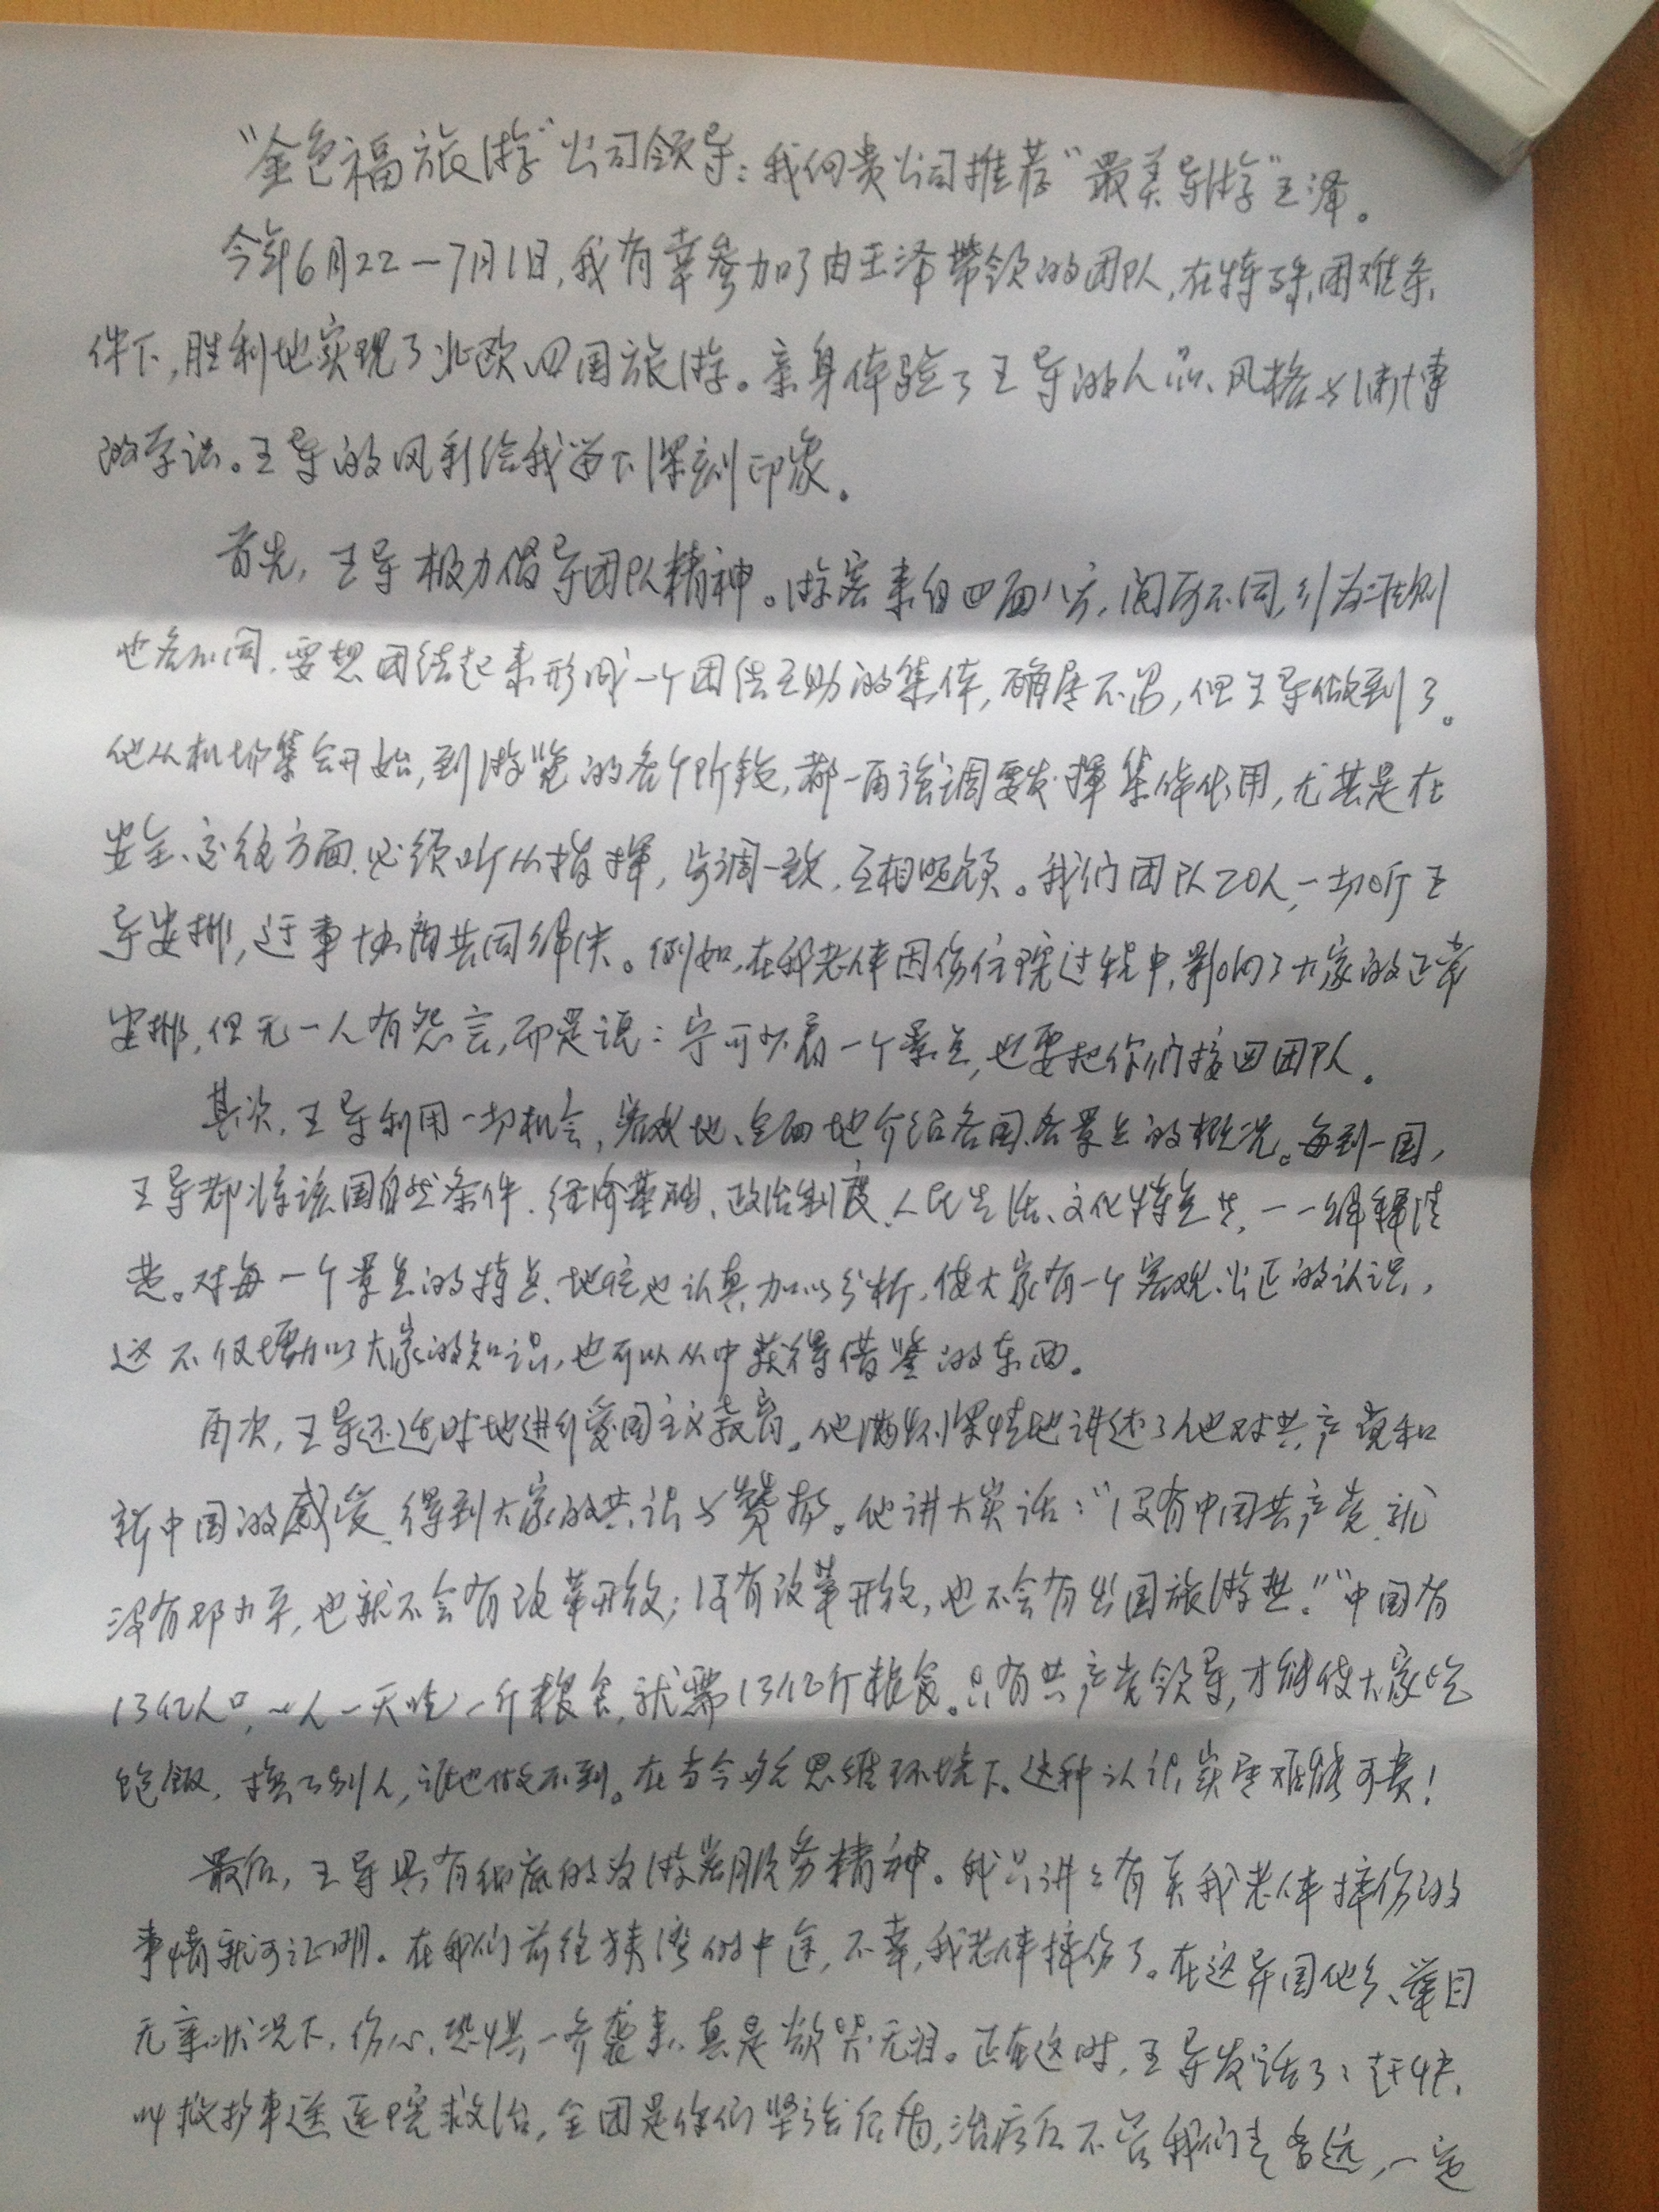 “金色福旅游”公司领导：我向贵公司推荐“最美导游”王泽。
今年6月22—7月1日，我有幸参加了由王泽带领的团队，在特殊困难条
件下，胜利地实现了北欧四国旅游。亲身体验了王导的人品、风格与渊博
的学识。王导的风彩给我留下深刻印象。
首先，王导极力倡导团队精神。游客来自四面八方，阅历不同，行为准则
也各不同，要想团结起来形成一个团结互助的集体，确属不易，但王导做到了。
他从机场集合开始，到游览的各个阶段，都一再强调要发挥集体作用，尤其是在
安全、交往方面，必须听从指挥，步调一致，互相照顾。我们团队20人，一切听王
导安排，遇事协商共同解决。例如，在我老伴因伤住院过程中，影响了大家的正常
安排，但无一人有怨言，而是说：宁可少看一个景点，也要把你们接回团队。
其次，王导利用一切机会，客观地、全面地介绍各国、各景点的概况。每到一国，
王导都将该国自然条件、经济基础、政治制度、人民生活、文化特点等，一一解释清
楚。对每一个景点的特点、地位也认真加以分析，使大家有一个客观、公正的认识，
这不仅增加以大家的知识，也可以从中获得借鉴的东西。
再次，王导还适时地进行爱国主义教育。他满怀深情地讲述了他对共产党和
新中国的感受，得到大家的共识与赞扬。他讲大实话：“没有中国共产党，就
没有邓小平，也就不会有改革开放；没有改革开放，也不会有出国旅游热！”“中国有
13亿人口，一人一天吃一斤粮食，就需13亿斤粮食。只有共产党领导，才能使大家吃
饱饭，换了别人，谁也做不到。在当今多元思维环境下，这种认识，实属难能可贵！
最后，王导具有彻底的为游客服务精神。我只讲讲有关我老伴摔伤的
事情就可证明。在我们前往峡湾的中途，不幸，我老伴摔伤了。在这异国他乡、举目
无亲状况下，伤心、恐惧一齐袭来，真是欲哭无泪。正在这时，王导发话了：赶快
叫救护车送医院救治，全团是你们坚强后盾，治疗后不管我们走多远，一定